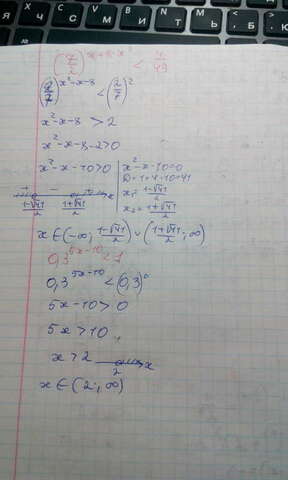 (7/2)^(x+8-x²) < 4/49
(2/7)^(x²-x-8) < (2/7)²
x²-x-8 > 2
x²-x-8-2>0
x²-x-10>0 | x²-x-10=0
D=1+4·10=41
x₁=(1-√41)/2
x₂=(1+√41)/2
+ - + x
(1-√41)/2 (1+√41)/2
x∈(-∞; (1-√41)/2)∪((1+√41)/2; ∞)
0,3^(5x-10)<1
0,3^(5x-10) < (0,3)⁰
5x-10>0
5x>10
x>2
2 x
x∈(2;∞)